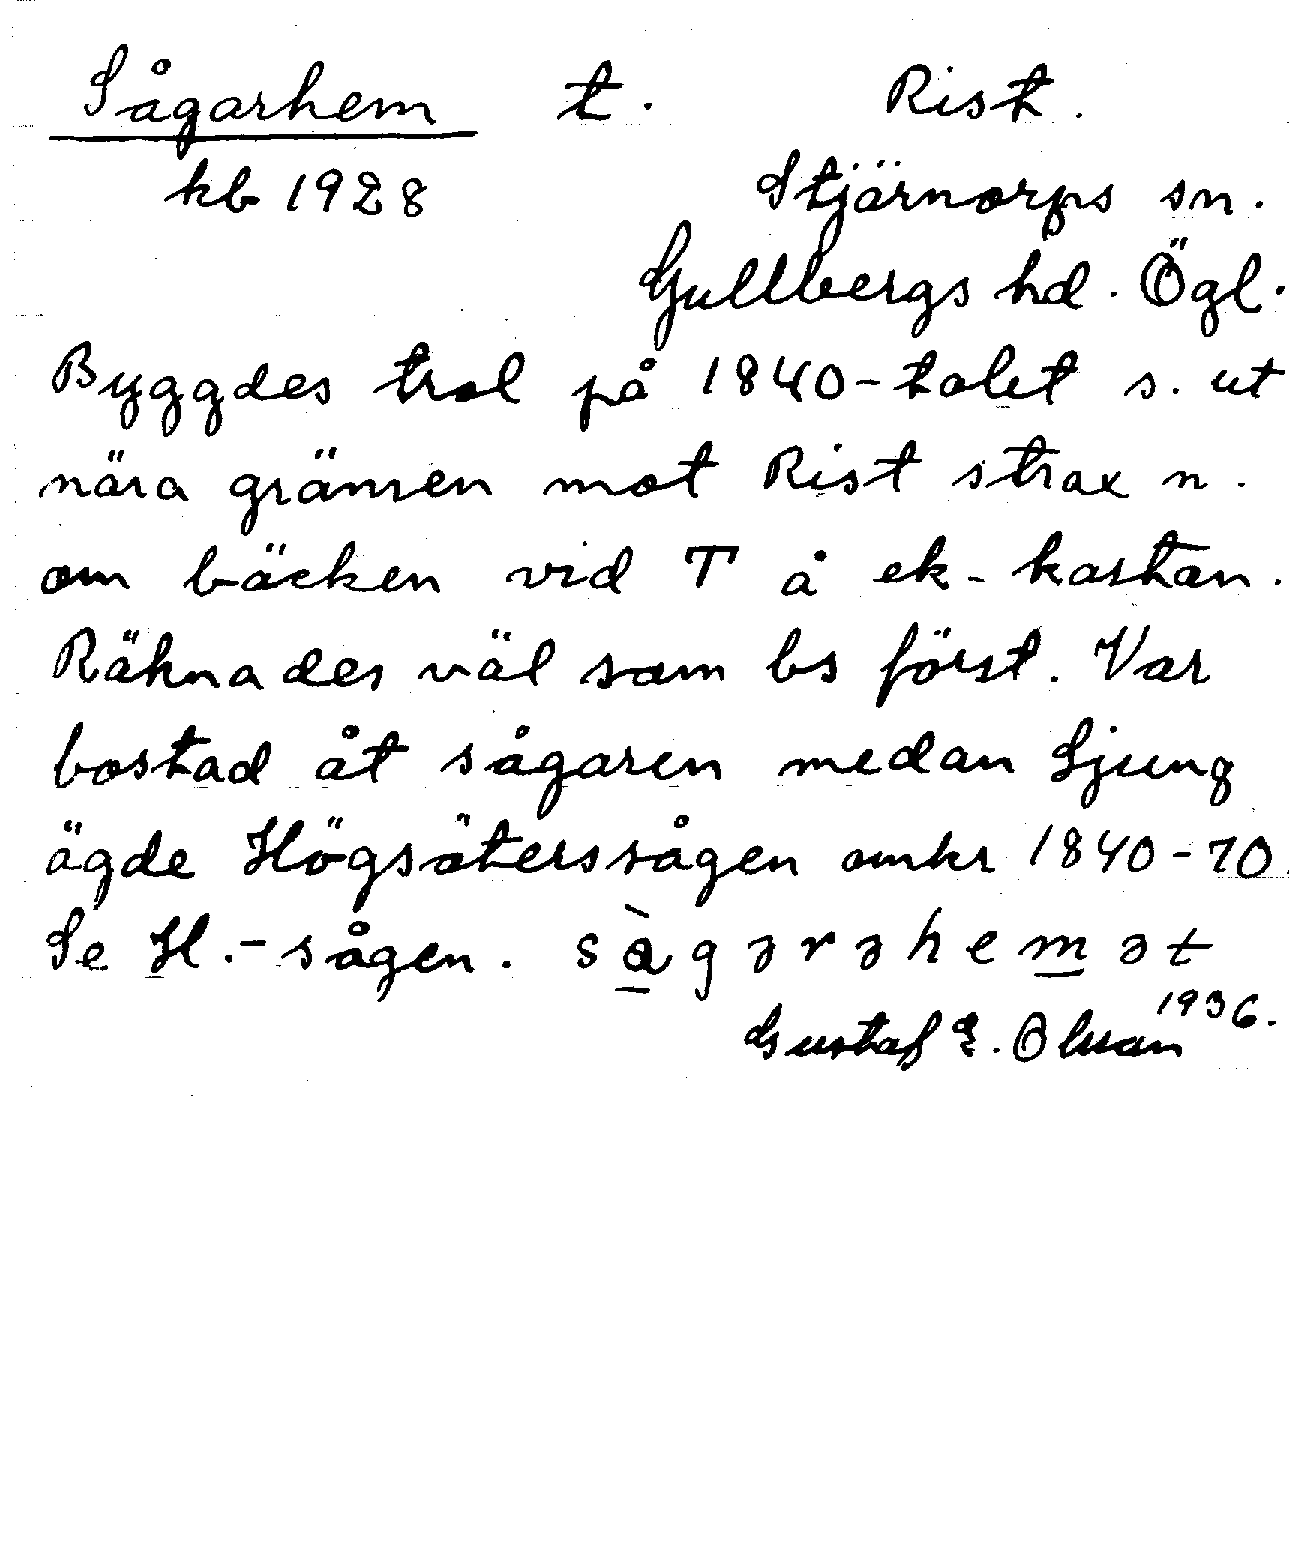 Sågarhem t. Rist.
kb 1928 Stjärnorps sn.
Gullbergs hd. Ögl.
Byggdes trol på 1840-talet s. ut
nära gränsen mot Rist strax n.
om bäcken vid T å ek-kartan.
Räknades väl som bs först. Var
bostad åt sågaren medan Ljung
ägde Högsäterssågen omkr 1840-70.
Se H.-sågen. sàgərəhemət
Gustaf E. Olsson 1936.